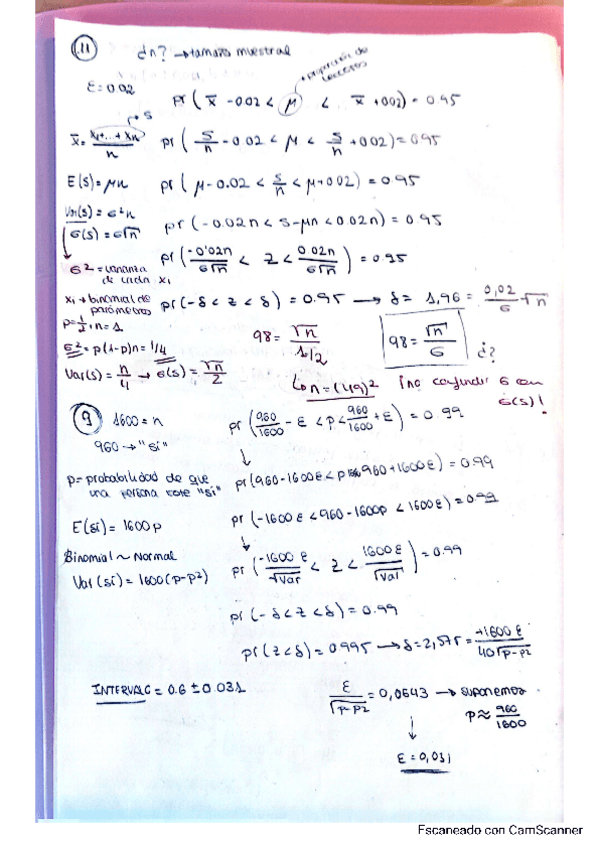 11 ¿n? → tamaño muestral
→ proporción de
ε = 0.02
pr( x̄ - 0.02 < μ < x̄ + 0.02) = 0.95
→ S
x̄ = x₁+...+xₙ / n pr( S/n - 0.02 < μ < S/n + 0.02) = 0.95
E(S) = μn pr( μ - 0.02 < S/n < μ + 0.02) = 0.95
Var(S) = σ²n
pr(-0.02n < S-μn < 0.02n) = 0.95
σ(S) = σ√n
pr( -0.02n/σ√n < Z < 0.02n/σ√n ) = 0.95
σ² = varianza
de cada xᵢ
xᵢ → binomial de pr(-δ < Z < δ) = 0.95 → δ = 1,96 = 0,02/σ √n
parámetros
p = 1/2, n = 1
98 = √n / 1/2 98 = √n/σ ¿?
σ² = p(1-p)n = 1/4
Var(S) = n/4 → σ(S) = √n/2
↳ n = (49)² ¡no confundir σ con
σ(S)!
9 1600 = n pr( 960/1600 - ε < p < 960/1600 + ε ) = 0.99
960 → "sí"
p = probabilidad de que
una persona vote "sí"
pr(960-1600ε < p 1600 < 960+1600ε) = 0.99
E(sí) = 1600p pr(-1600ε < 960-1600p < 1600ε) = 0.99
Binomial ~ Normal
Var(sí) = 1600(p-p²) pr( -1600ε/√Var < Z < 1600ε/√Var ) = 0.99
pr(-δ < Z < δ) = 0.99
pr(Z < δ) = 0.995 → δ = 2,575 = +1600ε / 40√p-p²
INTERVALO = 0.6 ± 0.031
ε/√p-p² = 0,0643 → suponemos
p ≈ 960/1600
ε = 0,031
Escaneado con CamScanner